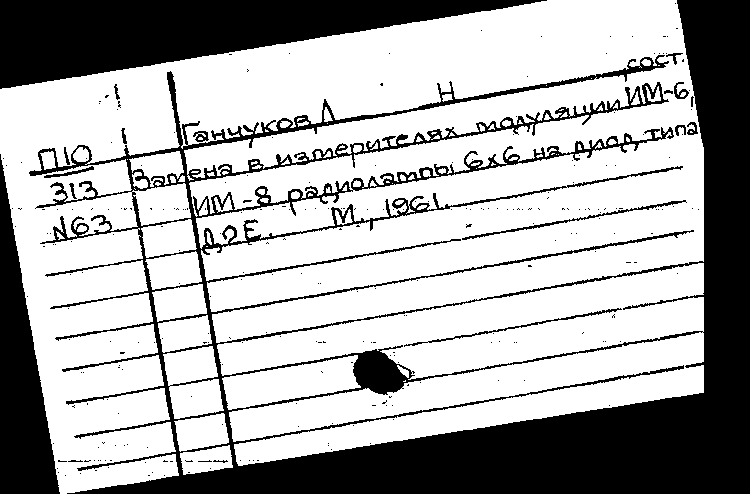 П10
313
N63
Ганчуков, Л Н сост.
Замена в измерителях модуляции ИМ-6,
ИМ-8 радиолампы 6х6 на диод типа
Д2Е. М., 1961.